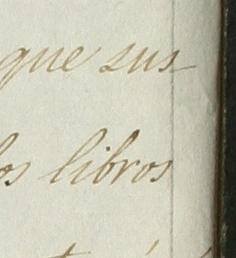 que sus
los libros